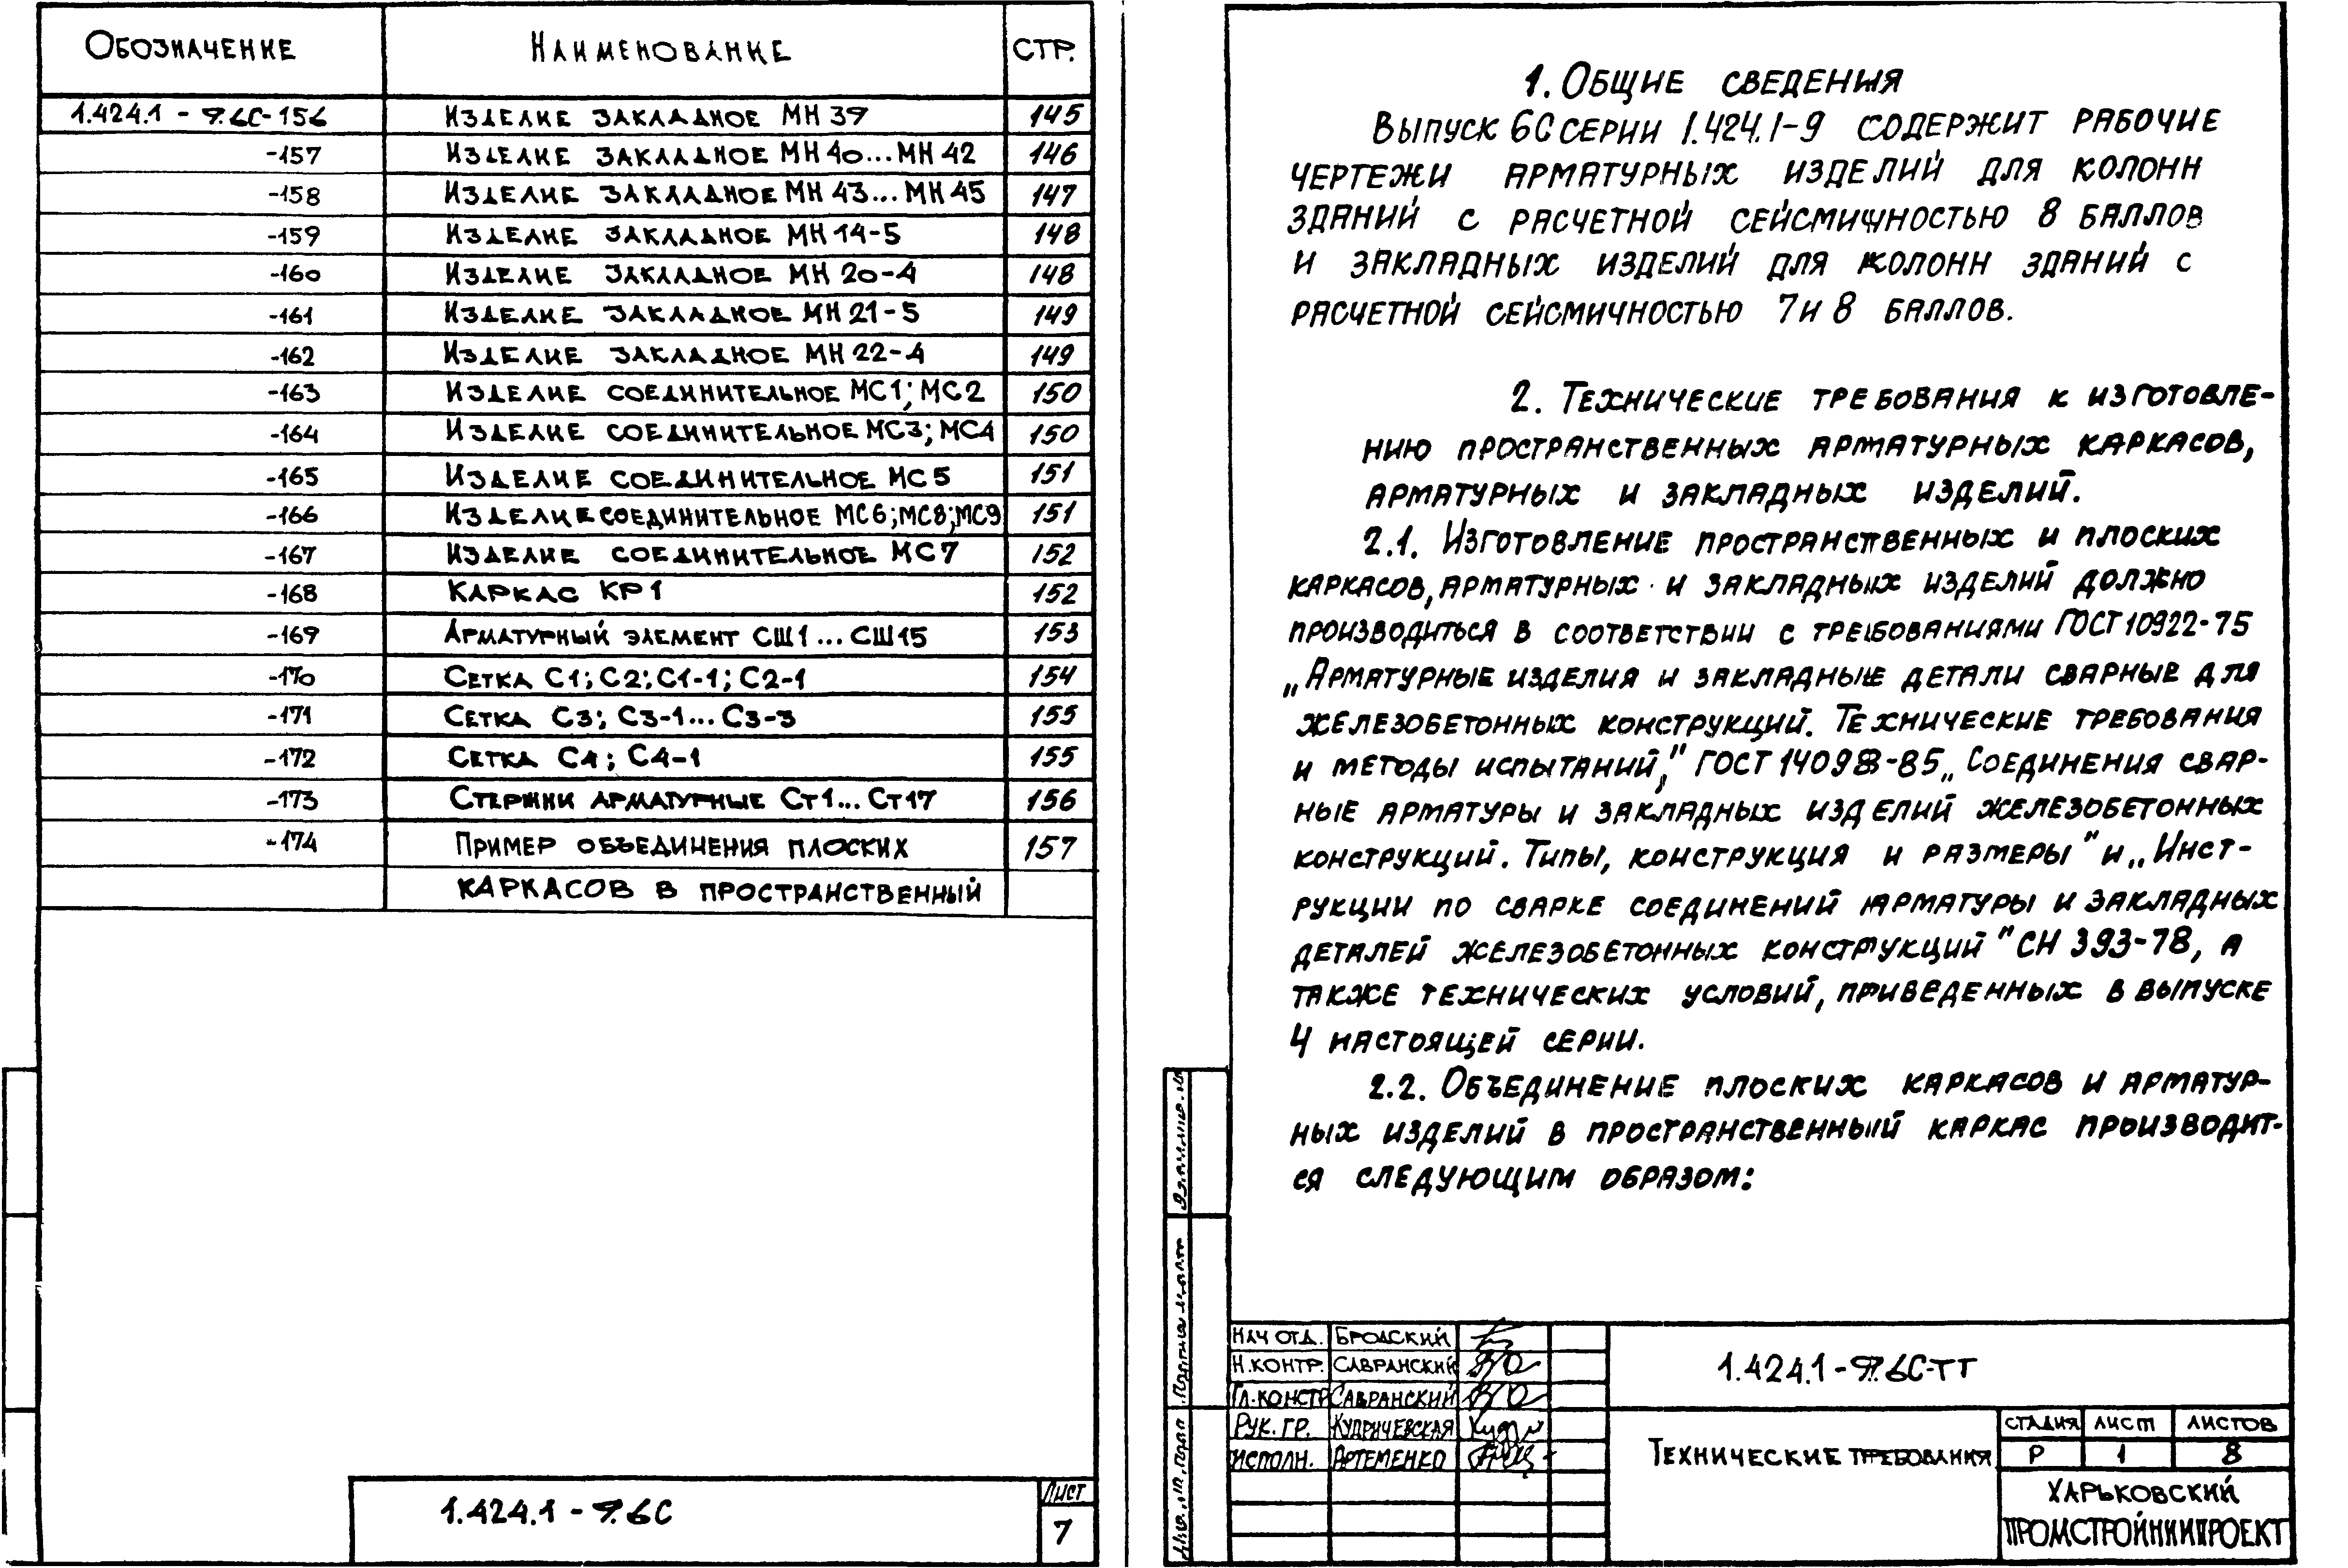 Обозначение Наименование стр.
1.424.1 - 9.6С-156 Изделие закладное МН 39 145
-157 Изделие закладное МН 40...МН 42 146
-158 Изделие закладное МН 43...МН 45 147
-159 Изделие закладное МН 14-5 148
-160 Изделие закладное МН 20-4 148
-161 Изделие закладное МН 21-5 149
-162 Изделие закладное МН 22-4 149
-163 Изделие соединительное МС1; МС2 150
-164 Изделие соединительное МС3; МС4 150
-165 Изделие соединительное МС5 151
-166 Изделие соединительное МС6;МС8;МС9 151
-167 Изделие соединительное МС7 152
-168 Каркас КР1 152
-169 Арматурный элемент СШ1...СШ15 153
-170 Сетка С1; С2; С1-1; С2-1 154
-171 Сетка С3; С3-1...С3-3 155
-172 Сетка С4; С4-1 155
-173 Стержни арматурные Ст1...Ст17 156
-174 Пример объединения плоских 157
каркасов в пространственный
1.424.1 - 9.6С
Лист
7
1. Общие сведения
Выпуск 6С серии 1.424.1-9 содержит рабочие
чертежи арматурных изделий для колонн
зданий с расчетной сейсмичностью 8 баллов
и закладных изделий для колонн зданий с
расчетной сейсмичностью 7 и 8 баллов.
2. Технические требования к изготовле-
нию пространственных арматурных каркасов,
арматурных и закладных изделий.
2.1. Изготовление пространственных и плоских
каркасов, арматурных и закладных изделий должно
производиться в соответствии с требованиями ГОСТ 10922-75
„Арматурные изделия и закладные детали сварные для
железобетонных конструкций. Технические требования
и методы испытаний," ГОСТ 14098-85 „Соединения свар-
ные арматуры и закладных изделий железобетонных
конструкций. Типы, конструкция и размеры" и „Инст-
рукции по сварке соединений арматуры и закладных
деталей железобетонных конструкций" СН 393-78, а
также технических условий, приведенных в выпуске
4 настоящей серии.
2.2. Объединение плоских каркасов и арматур-
ных изделий в пространственный каркас производит-
ся следующим образом:
Нач отд. Бродский
Н.контр. Савранский
Гл.констр Савранский
Рук. гр. Кудричевская
Исполн. Артеменко
1.424.1 - 9.6С-ТТ
Технические требования
стадия лист листов
Р 1 8
Харьковский
Промстройниипроект